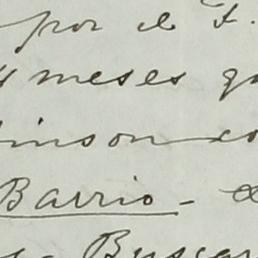 por el F.
meses
inson
Barrio -
Buscar